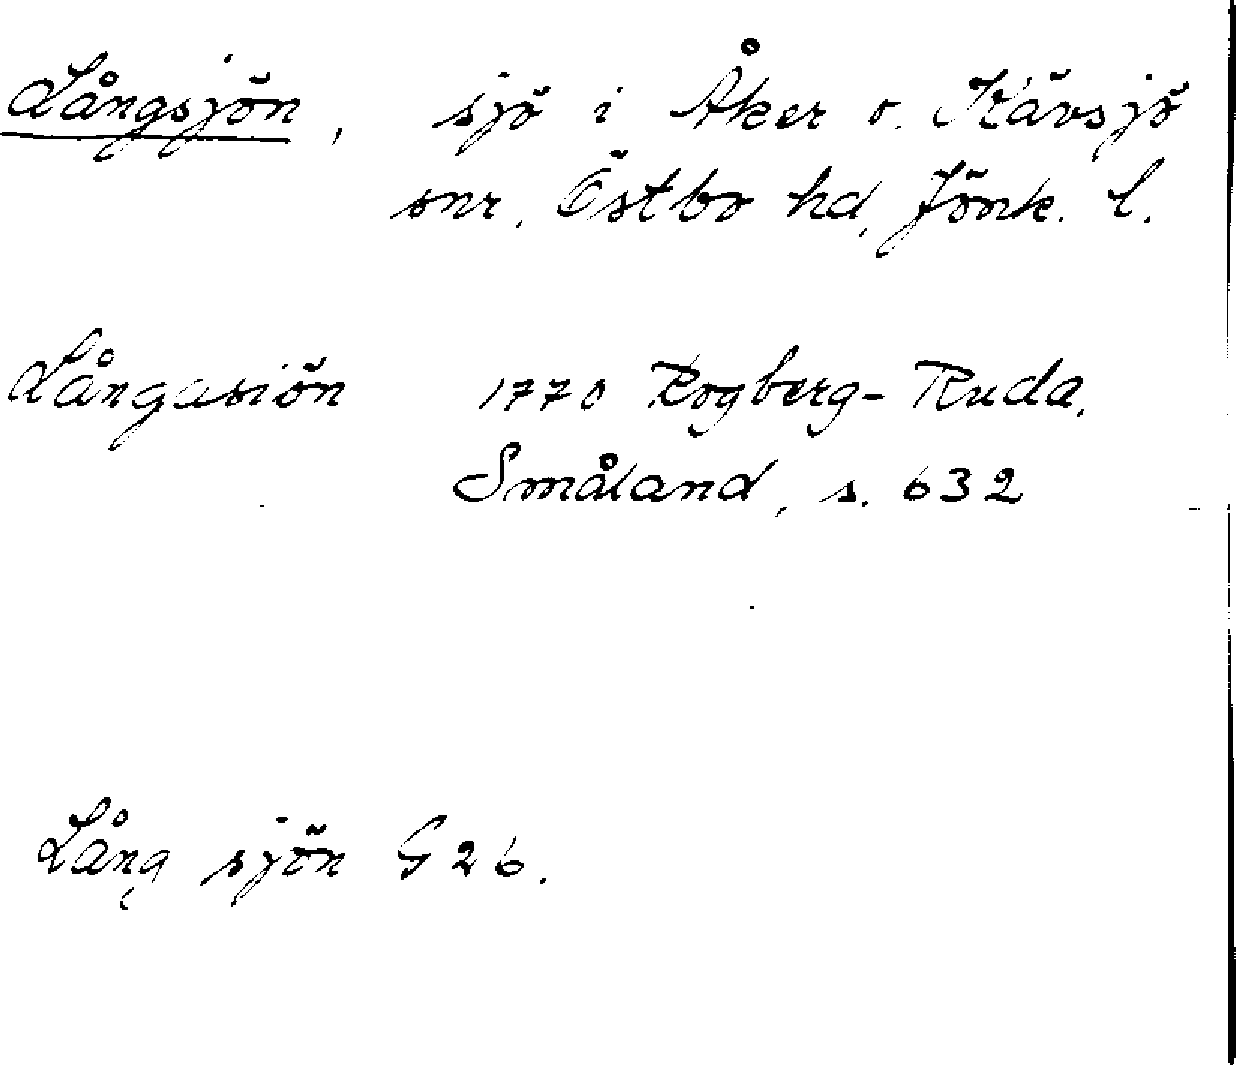 Långsjön, sjö i Åker o. Kävsjö
snr, Östbo hd, Jönk. l.
Långasiön 1770 Rogberg-Ruda,
Småland, s. 632
Lång sjön G 26.